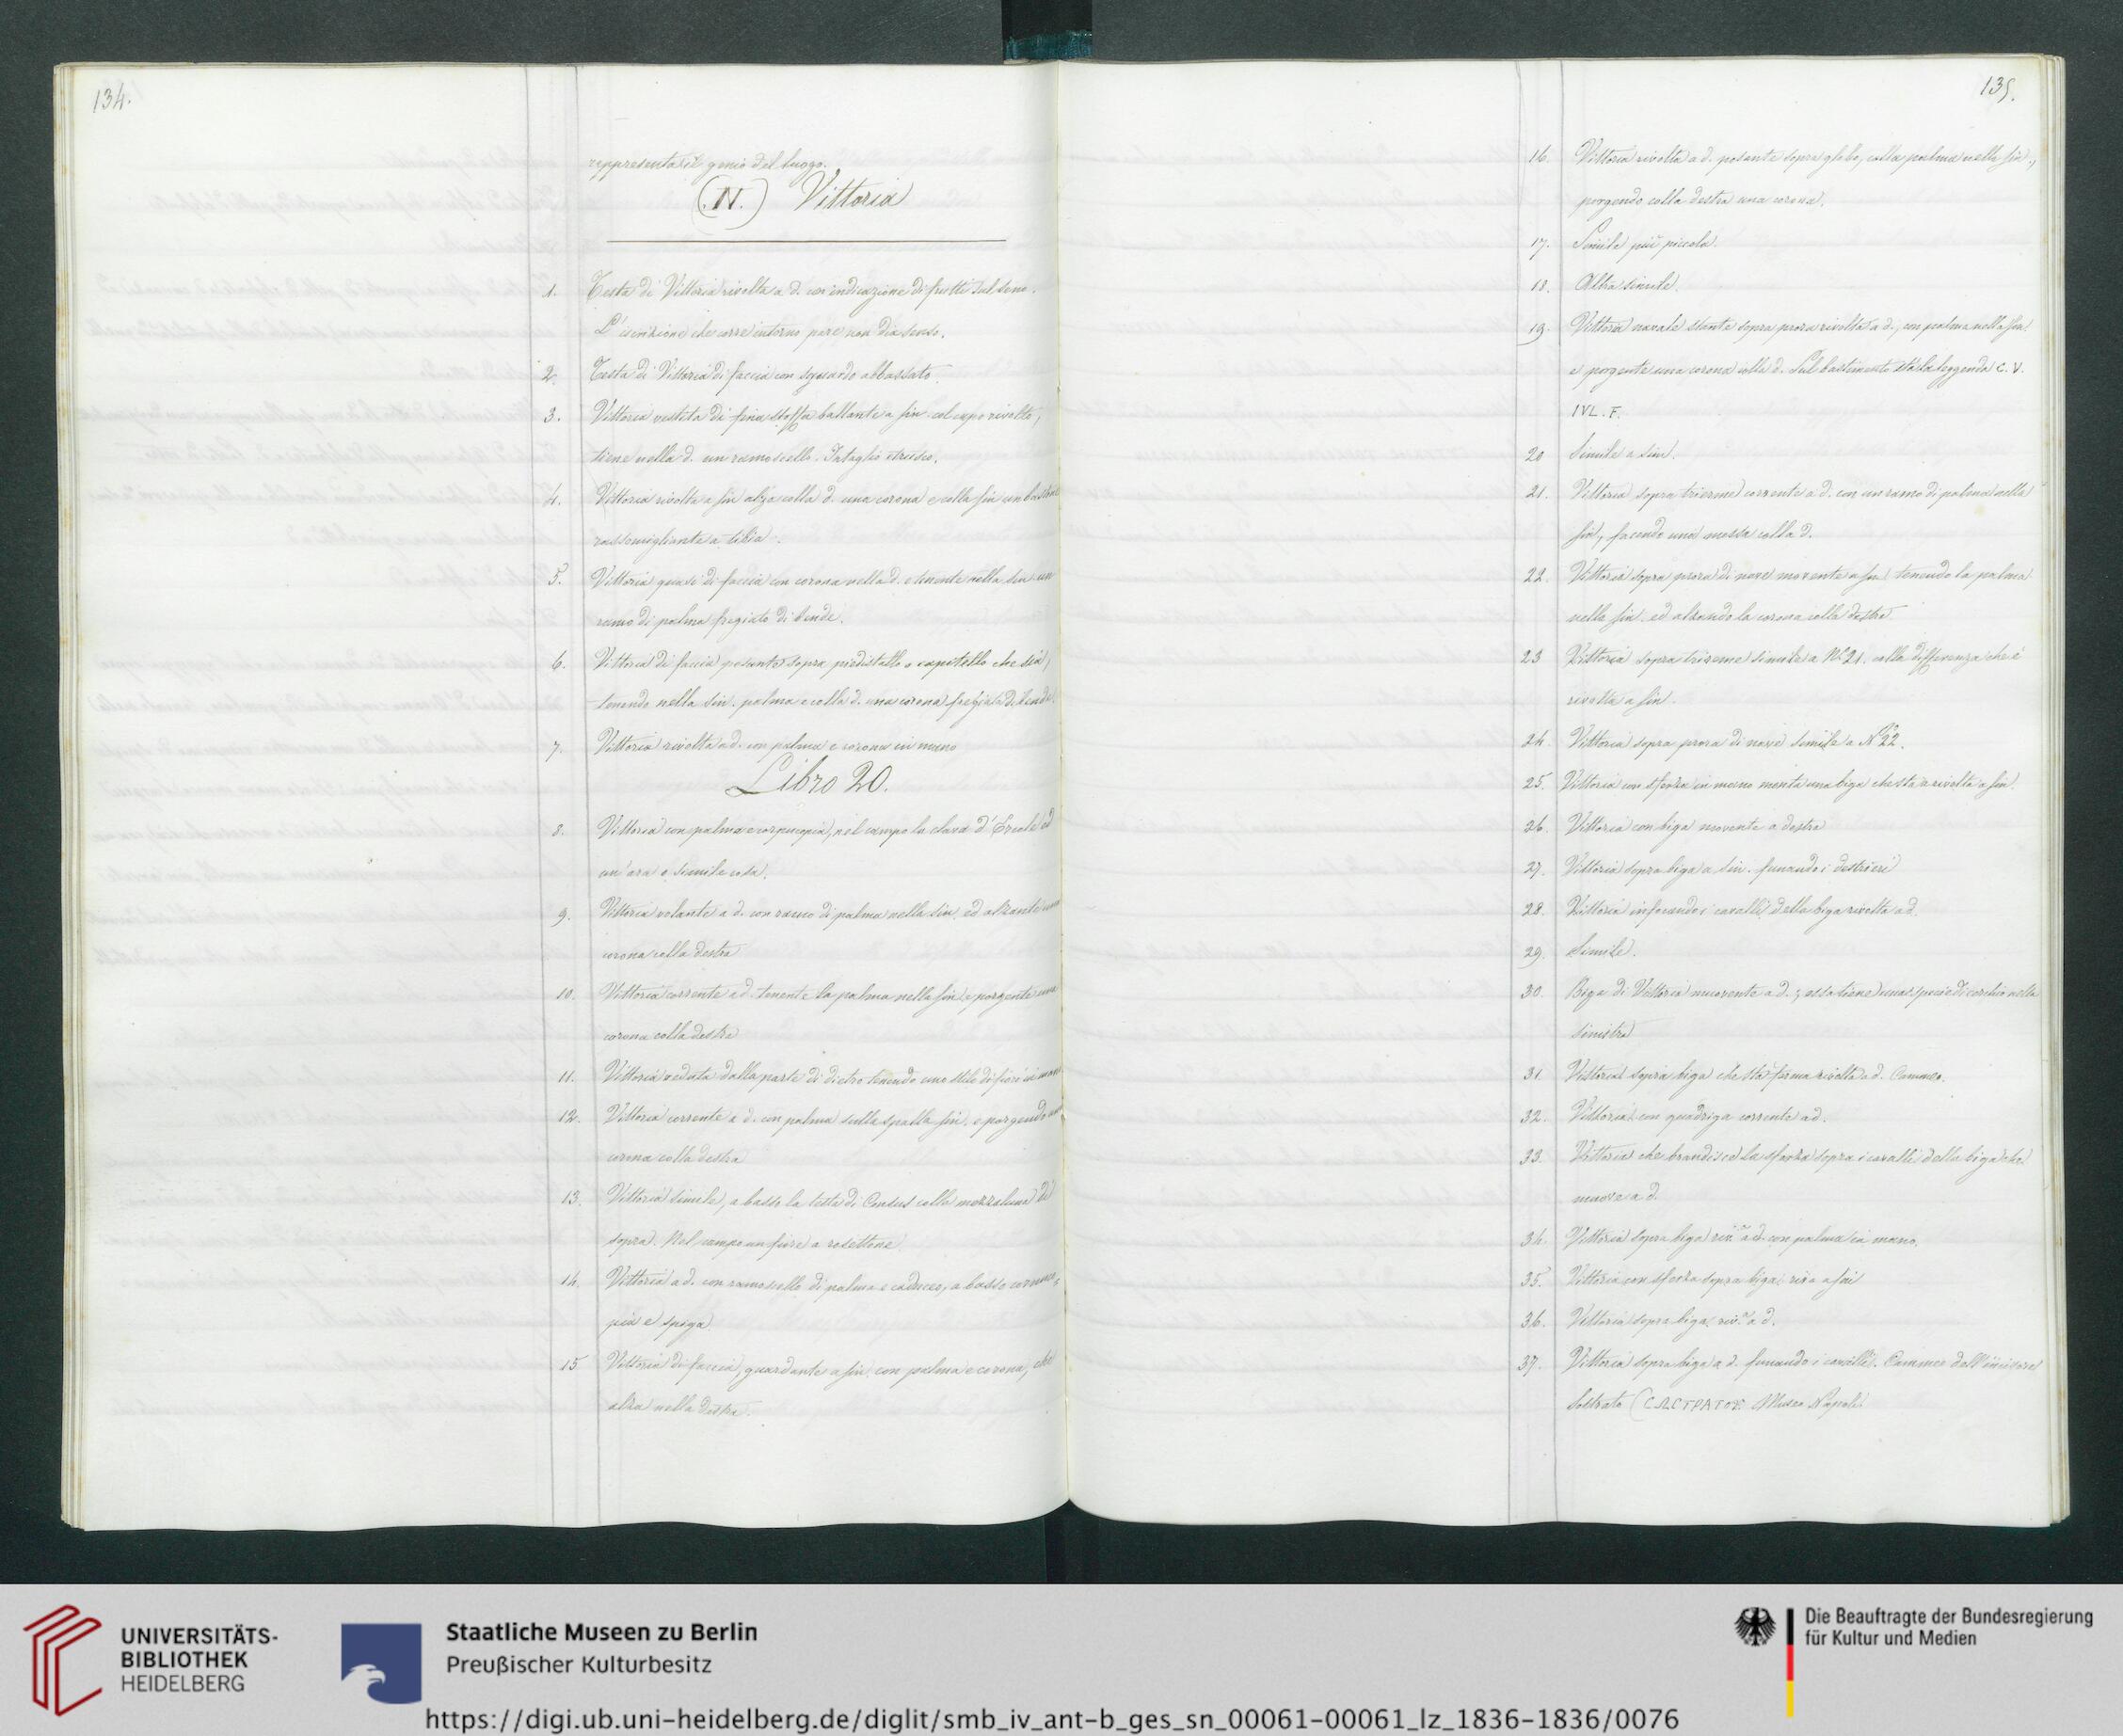 134.
rappresenta il genio del luogo.
(N.) Vittoria
1. Testa di Vittoria rivolta a d. con indicazione di frutti sul seno.
L'iscrizione che corre intorno pare non dia senso.
2. Testa di Vittoria di faccia con sguardo abbassato.
3. Vittoria vestita di fina stoffa ballante a sin. col capo rivolto,
tiene nella d. un ramoscello. Intaglio etrusco.
4. Vittoria rivolta a sin alza colla d. una corona e colla sin un bastone
rassomigliante a tibia.
5. Vittoria quasi di faccia con corona nella d. e tenente nella sin un
ramo di palma fregiato di bende.
6. Vittoria di faccia posante sopra piedistallo o capitello che sia,
tenendo nella sin. palma e colla d. una corona fregiata di bende.
7. Vittoria rivolta a d. con palma e corona in mano
Libro 20.
8. Vittoria con palma e cornucopia, nel campo la clava d'Ercole ed
un'ara o simile cosa.
9. Vittoria volante a d. con ramo di palma nella sin. ed alzante una
corona colla destra
10. Vittoria corrente a d. tenente la palma nella sin. e porgente una
corona colla destra
11. Vittoria veduta dalla parte di dietro tenendo uno stelo di fiore in mano
12. Vittoria corrente a d. con palma sulla spalla sin. e porgendo una
corona colla destra
13. Vittoria simile, a basso la testa di colla mezzaluna di
sopra. Nel campo un fiore a rosettone.
14. Vittoria a d. con ramoscello di palma e caduceo, a basso cornuco-
pia e spiga
15 Vittoria di faccia, guardante a sin. con palma e corona, che
alza nella destra.
135.
16. Vittoria rivolta a d. posante sopra globo, colla palma nella sin.,
porgendo colla destra una corona.
17. Simile più piccola.
18. Altra simile.
19. Vittoria navale stante sopra prora rivolta a d., con palma nella sin.
e porgente una corona colla d. Sul bastimento sta la leggenda C. V.
IVL. F.
20 Simile a sin.
21. Vittoria sopra trireme corrente a d. con un ramo di palma nella
sin, facendo una mossa colla d.
22. Vittoria sopra prora di nave movente a sin. tenendo la palma
nella sin. ed alzando la corona colla destra.
23 Vittoria sopra trireme simile a No 21. colla differenza che è
rivolta a sin.
24. Vittoria sopra prora di nave simile a No 22.
25. Vittoria con sferza in mano monta una biga che sta rivolta a sin.
26. Vittoria con biga movente a destra
27. Vittoria sopra biga a sin. frenando i destrieri
28. Vittoria i cavalli della biga rivolta a d.
29. Simile.
30. Biga di Vittoria muovente a d.; essa tiene una specie di cerchio nella
sinistra
31. Vittoria sopra biga che sta ferma rivolta a d. Cammeo.
32. Vittoria con quadriga corrente a d.
33. Vittoria che brandisce la sferza sopra i cavalli della biga che
muove a d.
34. Vittoria sopra biga riv.ta a d. con palma in mano.
35. Vittoria con sferza sopra biga riv.a a sin
36. Vittoria sopra biga riv.a a d.
37. Vittoria sopra biga a d. frenando i cavalli. Cammeo dell'incisore
Sostrato (CΩCTPATOY. Museo Napoli.
UNIVERSITÄTS-
BIBLIOTHEK
HEIDELBERG
Staatliche Museen zu Berlin
Preußischer Kulturbesitz
Die Beauftragte der Bundesregierung
für Kultur und Medien
https://digi.ub.uni-heidelberg.de/diglit/smb_iv_ant-b_ges_sn_00061-00061_lz_1836-1836/0076